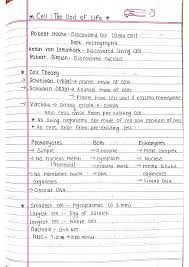 * Cell : The Unit of Life
Robert Hooke - Discovered Cell (dead cell)
Book micrographia
Anton von Leeuwenhoek - Discovered living cell
Robert Brown - Discovered nucleus
* Cell Theory
→ Schleiden (1838) plants made of cells
→ Schwann (1839) Animal made of cells
Plants have cell wall & plasma membrane
→ Virchow : Omnis cellula-e cellula
New cells arise from pre-existing cell
* All living organisms are made of cell and product of cell
* All cells arise from pre-existing cell
Prokaryotes Both Eukaryotes
→ Simple → Cytoplasm → More complex
→ No nuclear membrane → Ribosome → Nucleus
→ DNA
→ No membrane bound organelles
organelles
→ Circular DNA
* Smallest cell - Mycoplasma (0.3 mm)
Largest cell - Egg of ostrich
Longest cell - Nerve cell
Bacteria - 3-5 μm
RBC - 7 μm